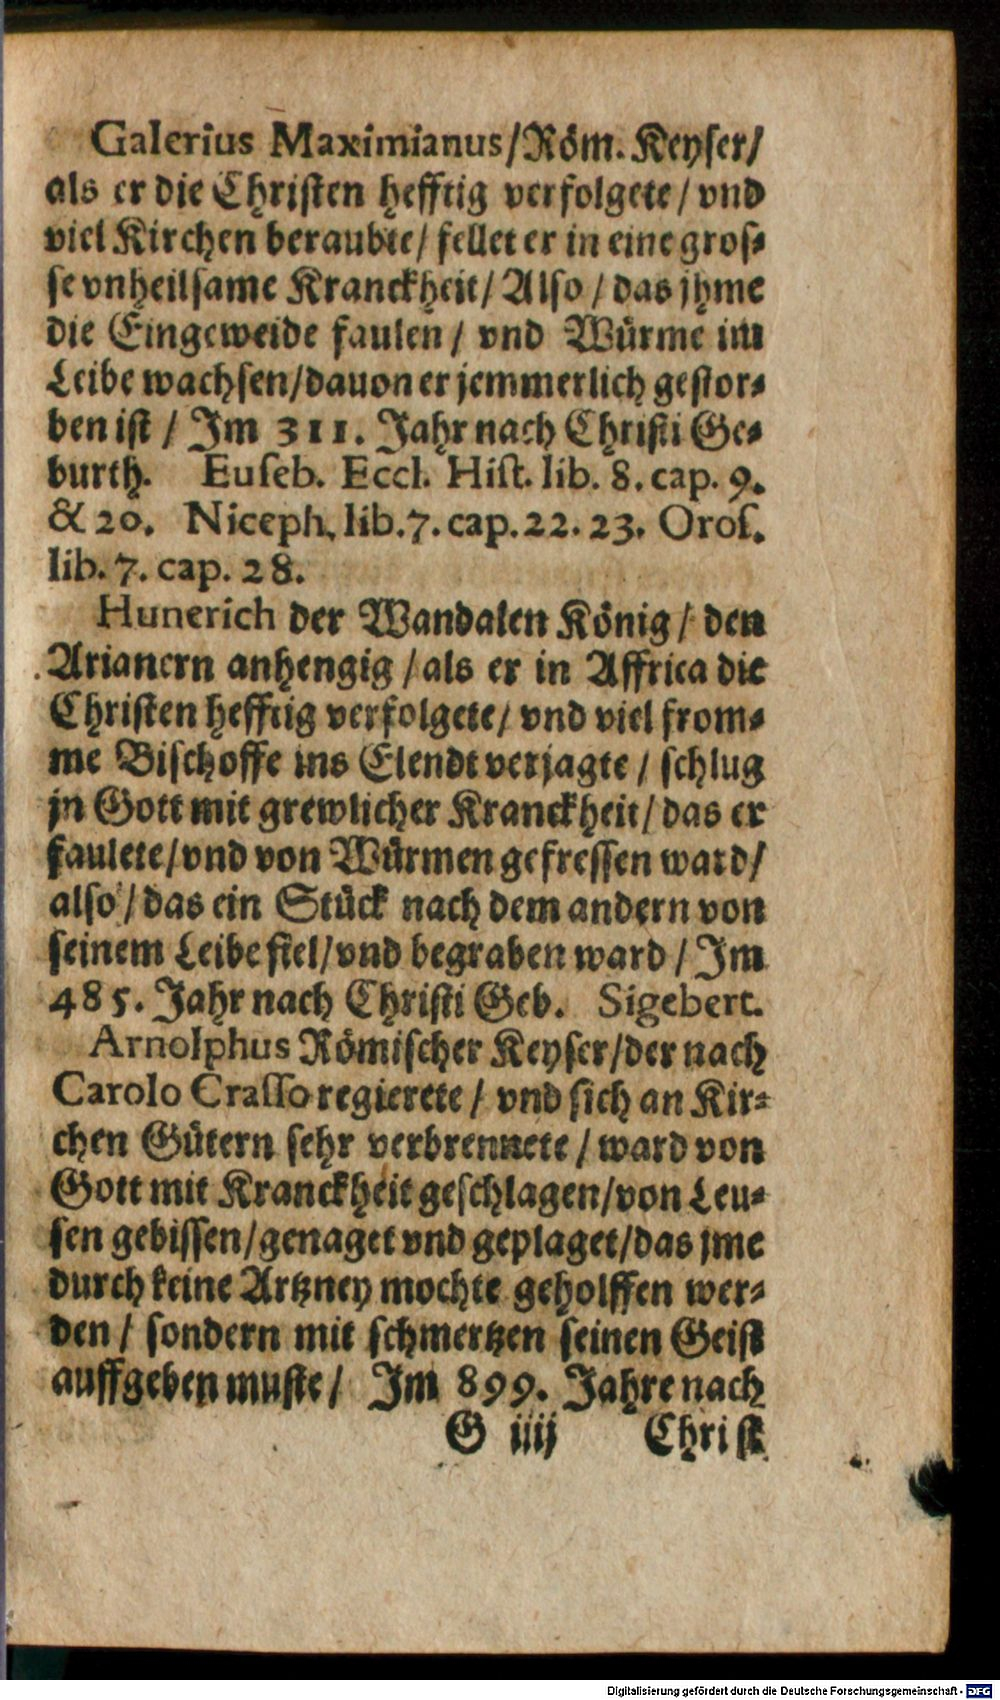 Galerius Maximianus/Röm. Keyser/
als er die Christen hefftig verfolgete/ vnd
viel Kirchen beraubte/ fellet er in eine gros-
se vnheilsame Kranckheit/ Also / das jhme
die Eingeweide faulen / vnd Würme im
Leibe wachsen/dauon er jemmerlich gestor-
ben ist / Im 311. Jahr nach Christi Ge-
burth. Euseb. Eccl. Hist. lib. 8. cap. 9.
& 20. Niceph. lib.7. cap.22. 23. Oros.
lib. 7. cap. 28.
Hunerich der Wandalen König/ den
Arianern anhengig /als er in Affrica die
Christen hefftig verfolgete/ vnd viel from-
me Bischoffe ins Elendt verjagte / schlug
jn Gott mit grewlicher Kranckheit/ das er
faulete/vnd von Würmen gefressen ward/
also / das ein Stück nach dem andern von
seinem Leibe fiel/vnd begraben ward / Im
485. Jahr nach Christi Geb. Sigebert.
Arnolphus Römischer Keyser/der nach
Carolo Crasso regierete / vnd sich an Kir-
chen Gütern sehr verbrennete / ward von
Gott mit Kranckheit geschlagen/von Leu-
sen gebissen/genaget vnd geplaget/das jme
durch keine Artzney mochte geholffen wer-
den / sondern mit schmertzen seinen Geist
auffgeben muste/ Im 899. Jahre nach
G iiij Christ
Digitalisierung gefördert durch die Deutsche Forschungsgemeinschaft - DFG